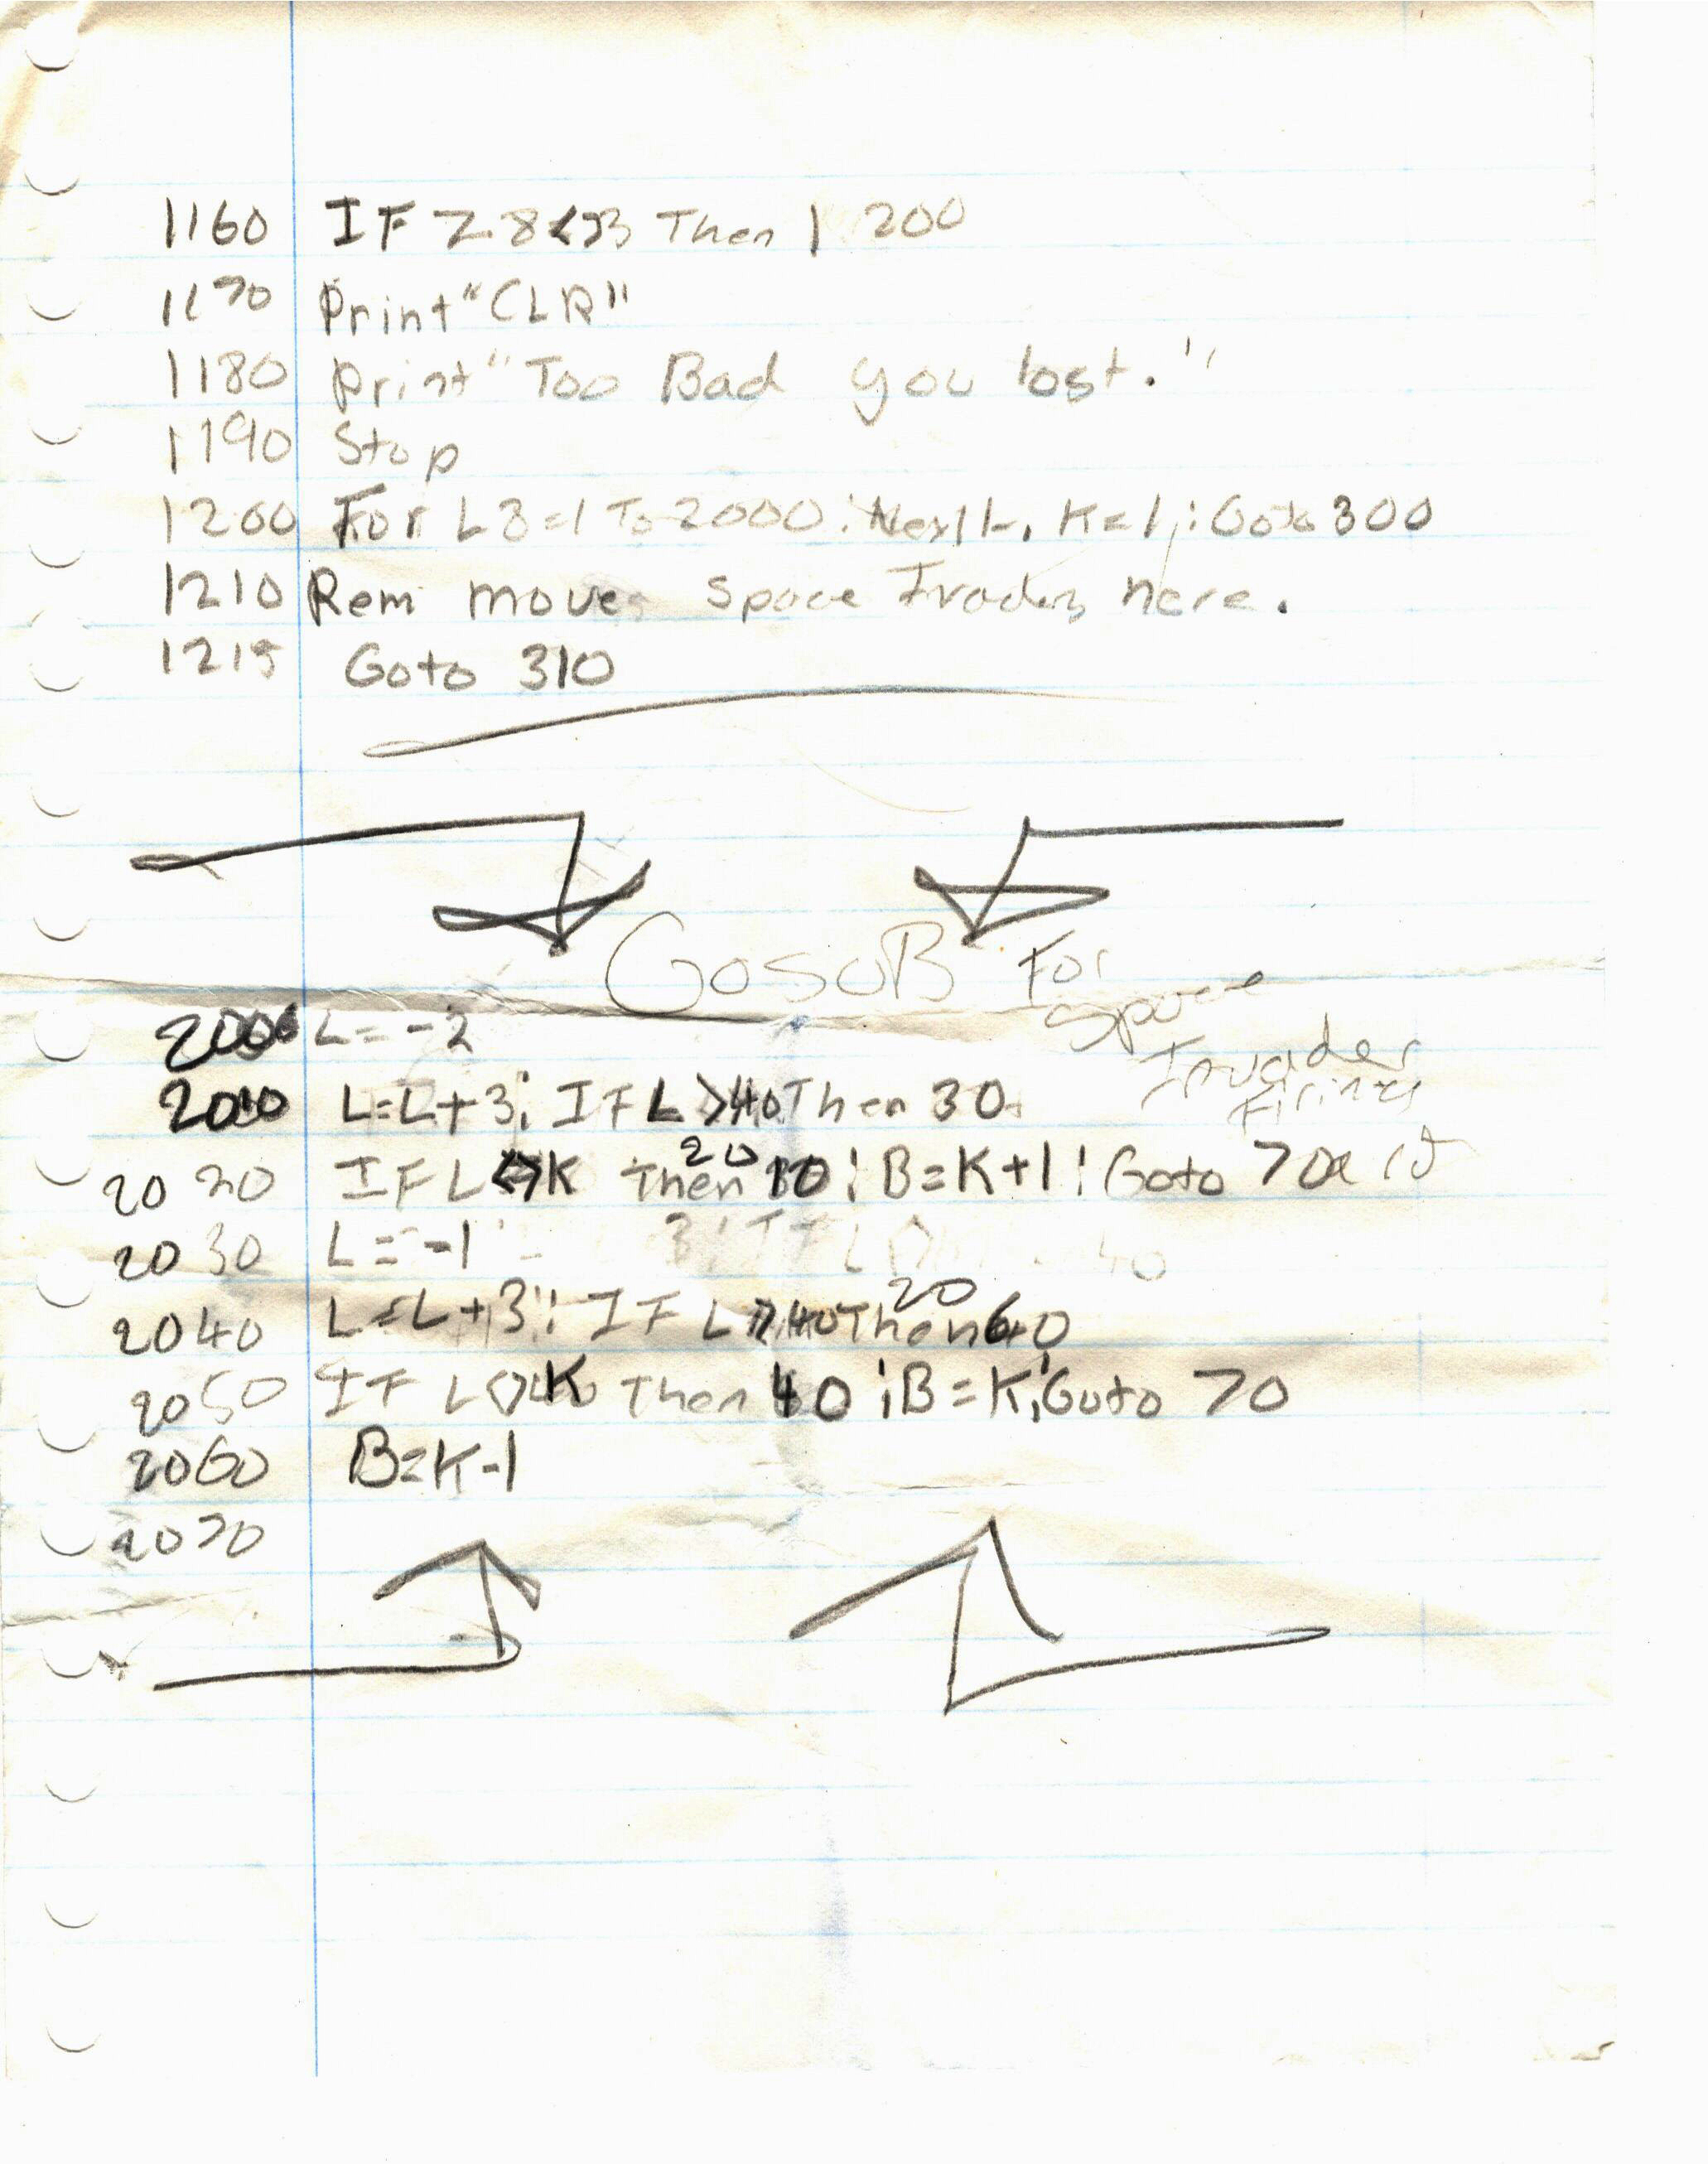 1160 IF Z8<B Then 1200
1170 Print "CLR"
1180 Print "Too Bad you lost."
1190 Stop
1200 For L3=1 To 2000: Next L: K=1: Goto 300
1210 Rem moves Space Invaders here.
1215 Goto 310
GosuB For
Space
Invader
Firing
2000 L=-2
2010 L=L+3: IF L>40 Then 30
20
2020 IF L<>K Then 10: B=K+1: Goto 70
2030 L=-1
20
2040 L=L+3: IF L>40 Then 60
2050 IF L<>K Then 40: B=K: Goto 70
2060 B=K-1
2070